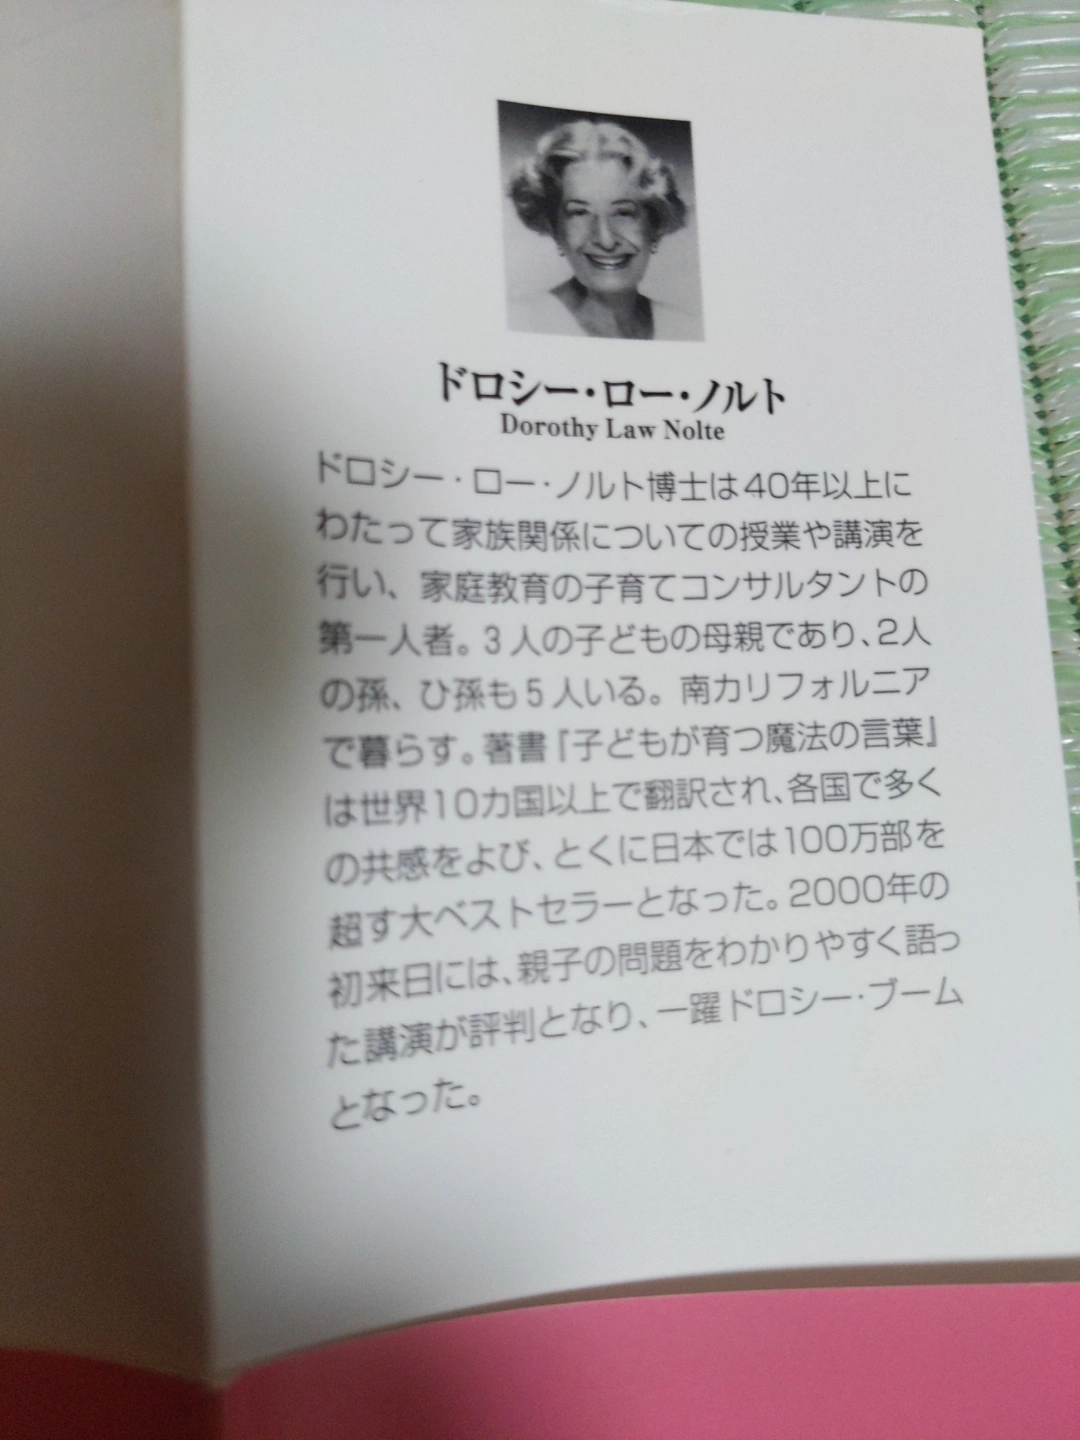 ドロシー・ロー・ノルト
Dorothy Law Nolte
ドロシー・ロー・ノルト博士は40年以上に
わたって家族関係についての授業や講演を
行い、家庭教育の子育てコンサルタントの
第一人者。3人の子どもの母親であり、2人
の孫、ひ孫も5人いる。南カリフォルニア
で暮らす。著書『子どもが育つ魔法の言葉』
は世界10カ国以上で翻訳され、各国で多く
の共感をよび、とくに日本では100万部を
超す大ベストセラーとなった。2000年の
初来日には、親子の問題をわかりやすく語っ
た講演が評判となり、一躍ドロシー・ブーム
となった。